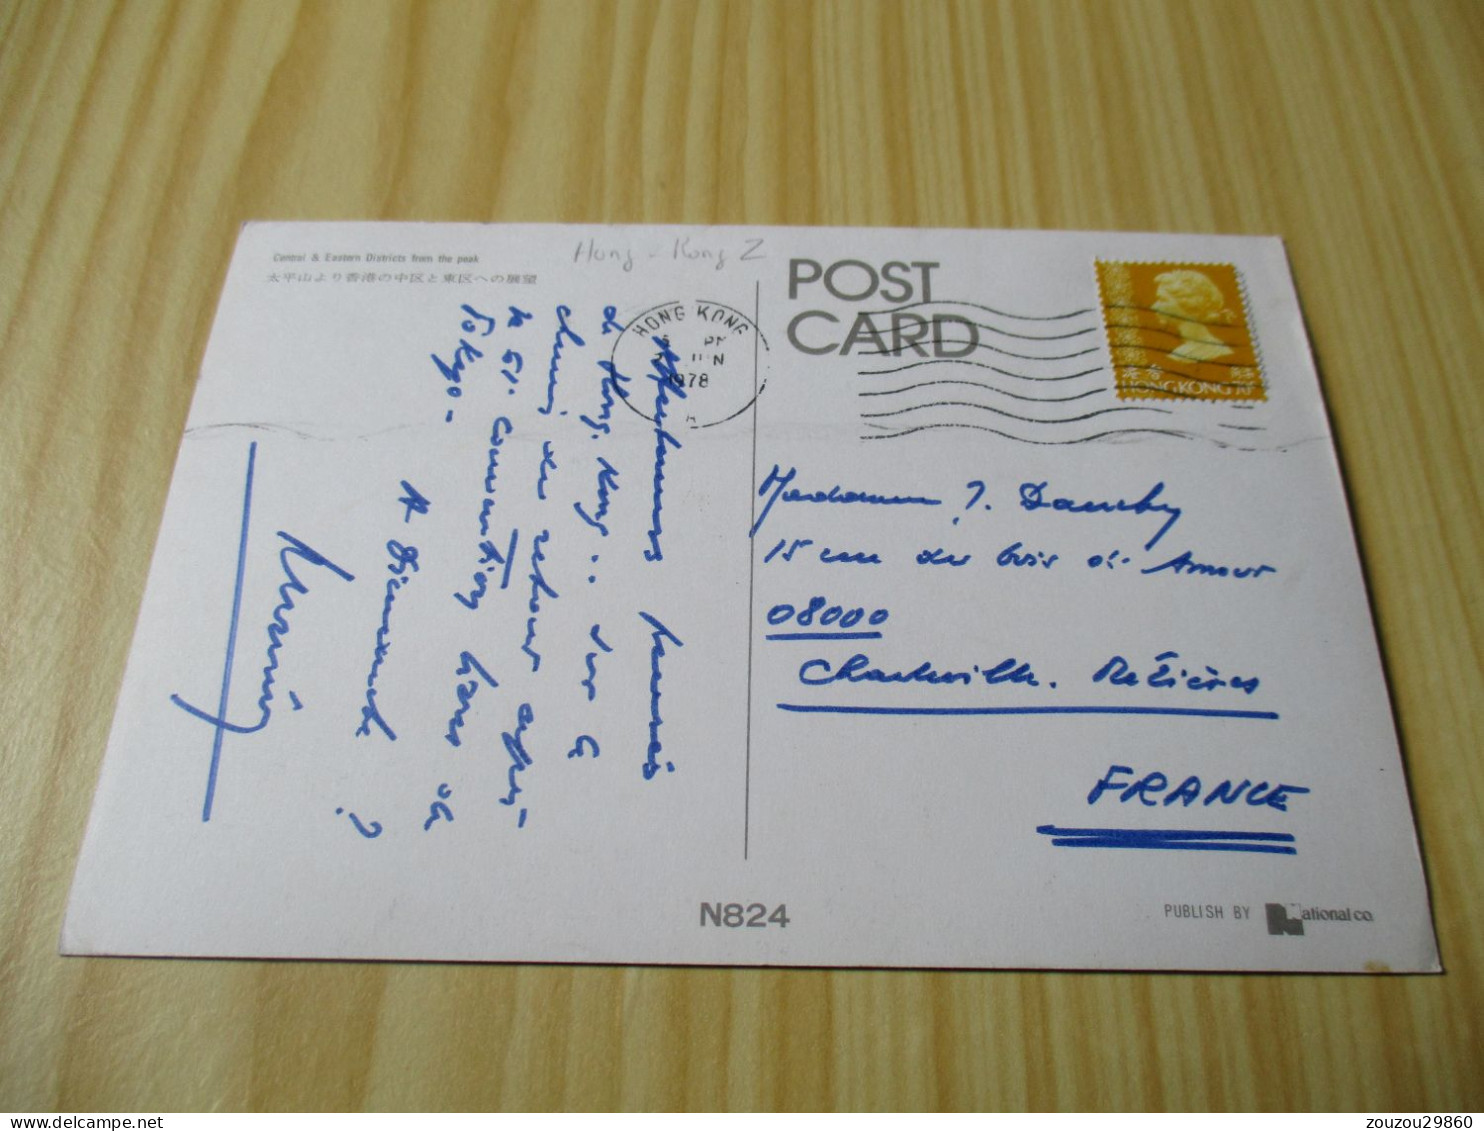 Central & Eastern Districts from the peak
太平山より香港の中区と東区への展望
Hong-Kong 2
POST
CARD
HONG KONG
PM
JUN
1978
香港
HONG KONG
de Hong. Kong.. sur le
chemin du retour après
la convention
Tokyo-
A Dimanche ?
Madame J. Dauby
15 rue du bois d'Amour
08000
Charleville. Mézières
FRANCE
N824
PUBLISH BY National co
zouzou29860